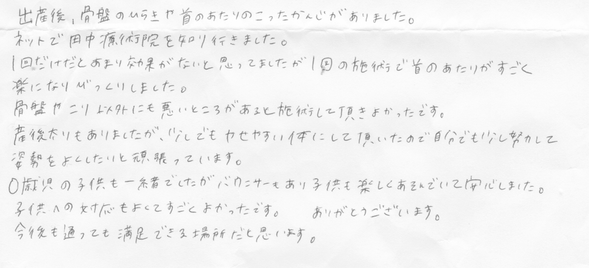 出産後、骨盤のひらきや首のあたりのこったかんじがありました。
ネットで田中療術院を知り行きました。
1回だけだとあまり効果がないと思ってましたが1回の施術で首のあたりがすごく
楽になりびっくりしました。
骨盤やこり以外にも悪いところがあると施術して頂きよかったです。
産後太りもありましたが、少しでもヤセやすい体にして頂いたので自分でも少し努力して
姿勢をよくしたいと頑張っています。
0歳児の子供も一緒でしたがバウンサーもあり子供も楽しくあそんでいて安心しました。
子供への対応もよくてすごくよかったです。 ありがとうございます。
今後も通っても満足できる場所だと思います。